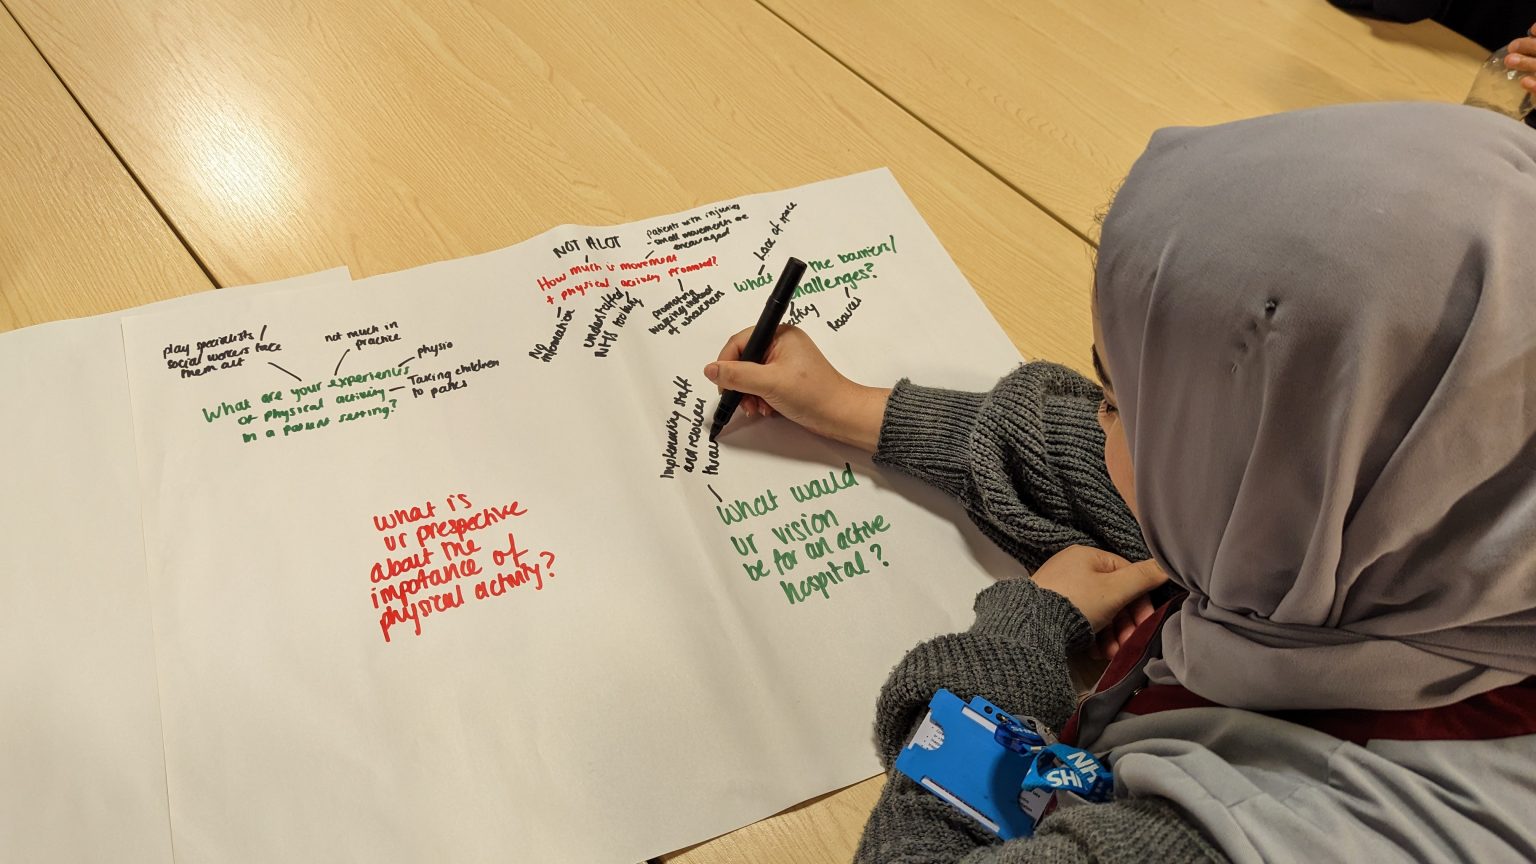 NOT ALOT
patients with injuries
- small movements are
encouraged
How much is movement
+ physical activity promoted?
No
information
understaffed
NHS
promoting
instead
of
Lack of space
What
the barriers/
challenges?
Resources
play specialists /
social workers take
them out
not much in
practice
physio
Taking children
to parks
What are your experiences
of physical activity
in a patient setting?
Implementing staff
and resources
What would
ur vision
be for an active
hospital?
What is
ur prespective
about the
impotance of
physical activity?
NHS